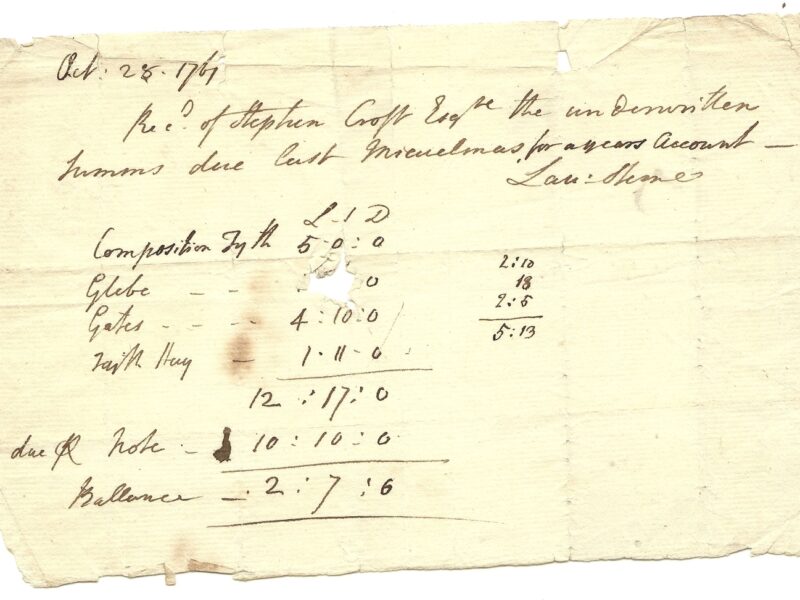 Oct: 25. 1761
Rec.D of Stephen Croft Esqre the underwritten
summs due last Micaelmas for a years Account —
Lau: Sterne
L S D
Composition Tyth 5-0:0
Glebe - - 0
Gates - - - 4:10:0
Tajth Hay - 1-11-0
12:17:0
due Note - 10:10:0
Ballance - 2:7:0
2:10
18
2:5
5:13